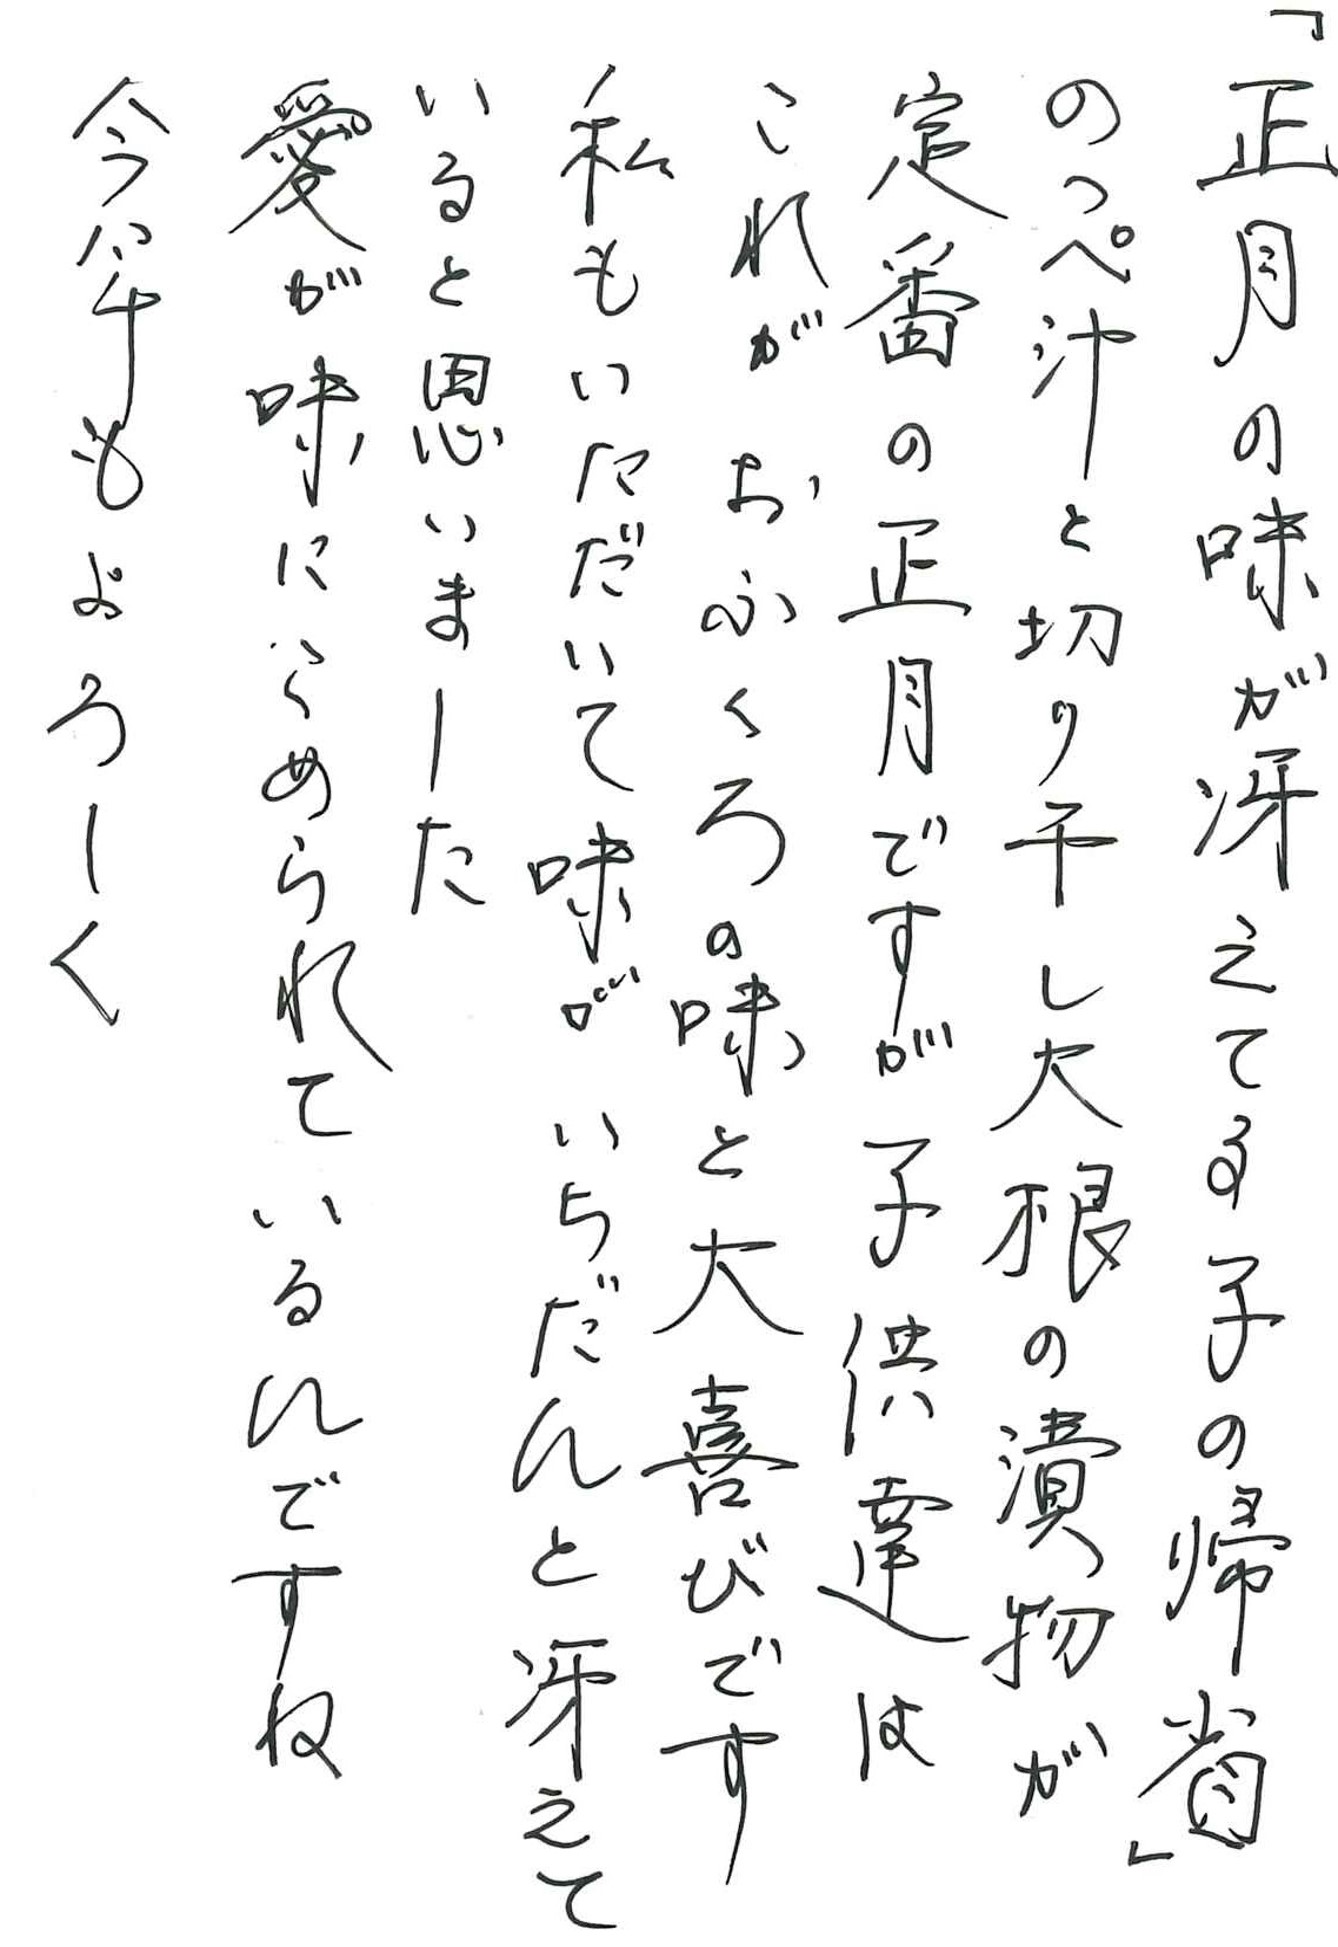 「正月の味が冴えてる子の帰省」
のっぺ汁と切り干し大根の漬物が
定番の正月ですが子供達は
これがおふくろの味と大喜びです
私もいただいて味がいちだんと冴えて
いると思いました
愛が味にこめられているんですね
今年もよろしく